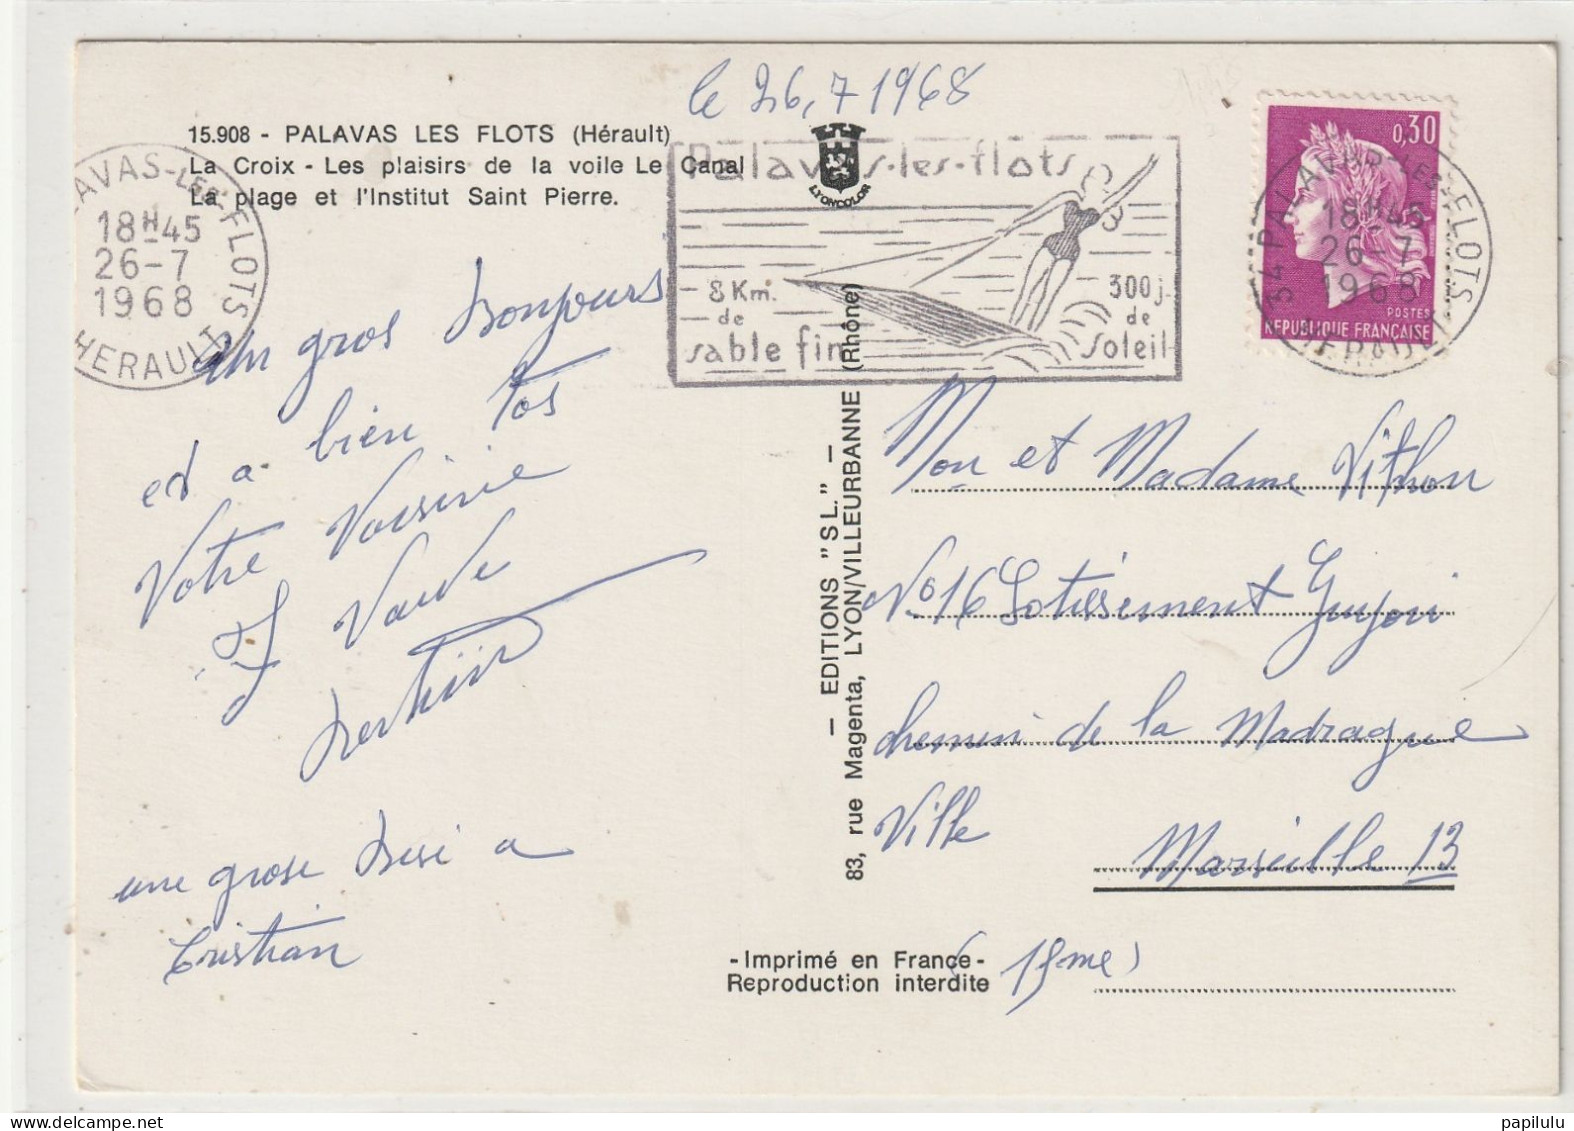 le 26,7 1968
15.908 - PALAVAS LES FLOTS (Hérault)
La Croix - Les plaisirs de la voile Le Canal
La plage et l'Institut Saint Pierre.
LYONCOLOR
PALAVAS-LES-FLOTS
18H45
26-7
1968
HERAULT
Palavas-les-flots
8 Km.
de
sable fin
300 j.
de
Soleil
0,30
POSTES
REPUBLIQUE FRANÇAISE
34 PALAVAS-LES-FLOTS
18H45
26-7
1968
HERAULT
un gros Bonjours
et a bien tos
Votre Voisine
une grose Bisi a
Cristian
— EDITIONS "S L." —
83, rue Magenta, LYON/VILLEURBANNE (Rhône)
Mon et Madame Vithon
No 16 Lotissement Guyon
chemin de la Madrague
Ville
Marseille 13
(15me)
-Imprimé en France-
Reproduction interdite
papilulu